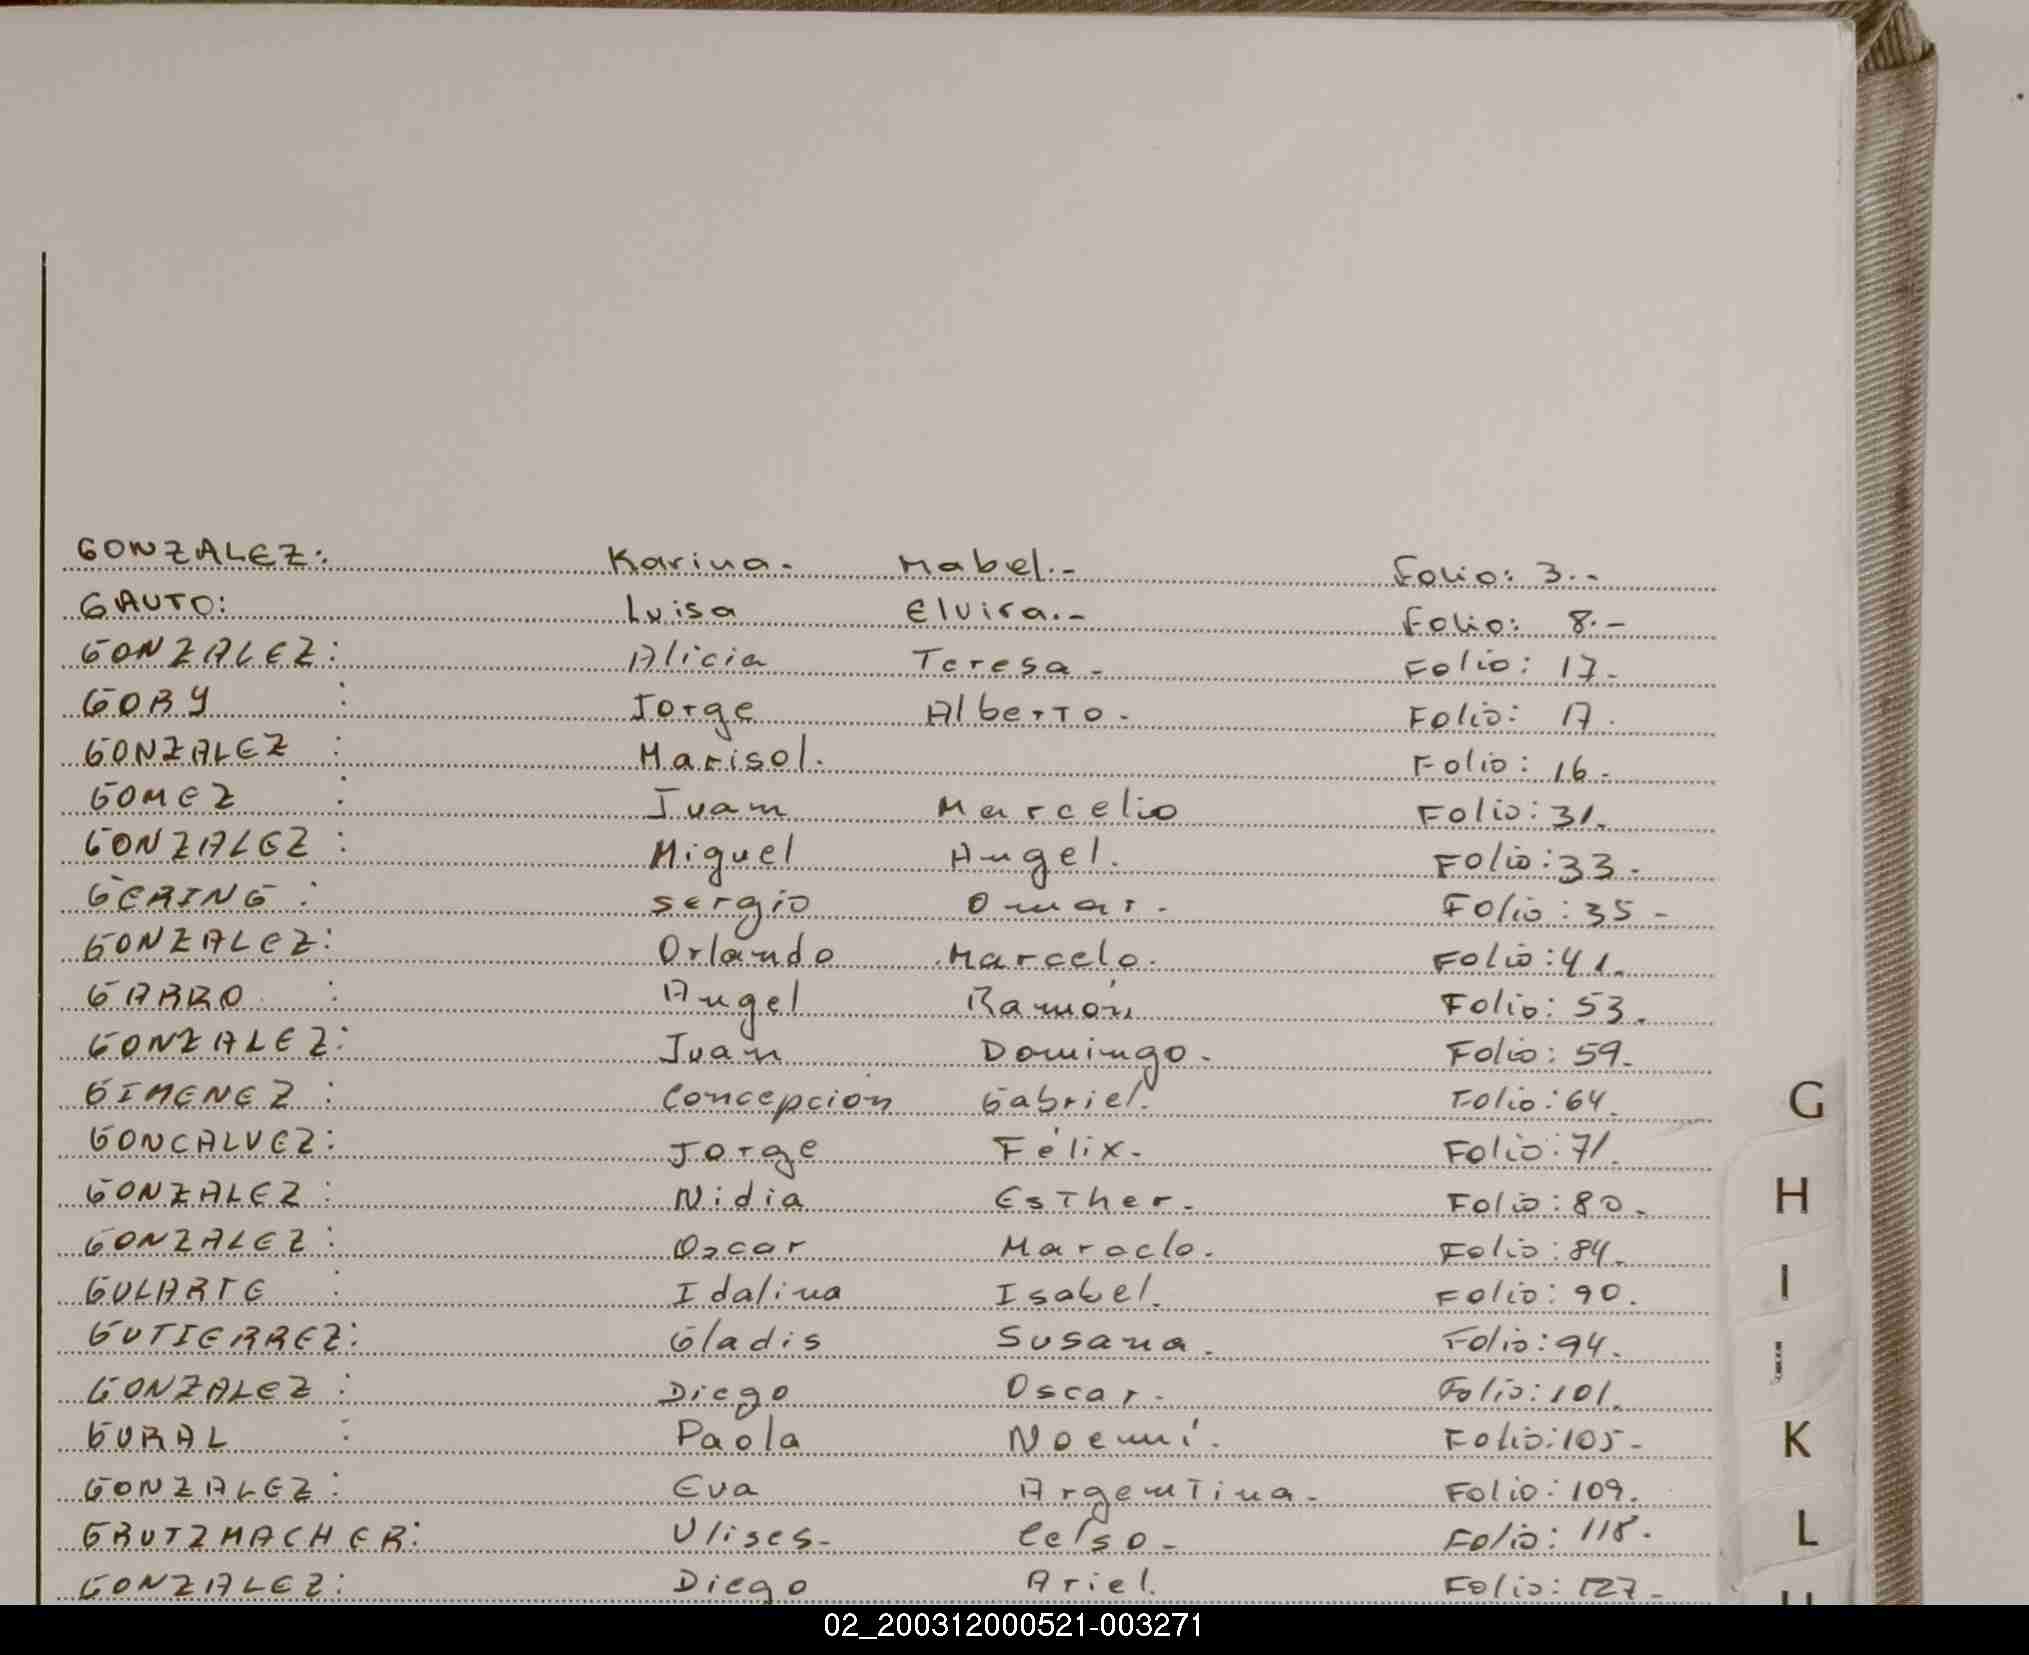 GONZALEZ: Karina. Mabel.- Folio: 3.-
GAUTO: Luisa Elvira.- Folio: 8.-
GONZALEZ: Alicia Teresa. Folio: 17.
GORY : Jorge Alberto. Folio: 17.
GONZALEZ : Marisol. Folio: 16.
GOMEZ : Juan Marcelio Folio: 31.
GONZALEZ : Miguel Angel. Folio: 33.
GERING : Sergio Omar. Folio: 35-
GONZALEZ: Orlando Marcelo. Folio: 41.
GARRO : Angel Ramón Folio: 53.
GONZALEZ: Juan Domingo. Folio: 59.
GIMENEZ : Concepción Gabriel. Folio: 64.
GONCALVEZ: Jorge Félix. Folio: 71.
GONZALEZ : Nidia Esther. Folio: 80.
GONZALEZ : Oscar Maroclo. Folio: 84.
GULARTE : Idalina Isabel. Folio: 90.
GUTIERREZ: Gladis Susana. Folio: 94.
GONZALEZ : Diego Oscar. Folio: 101.
GURAL : Paola Noemí. Folio: 105-
GONZALEZ : Eva Argentina. Folio: 109.
GRUTZMACHER: Ulises- Celso- Folio: 118.
GONZALEZ: Diego Ariel. Folio: 127-
G
H
I
K
L
02_200312000521-003271